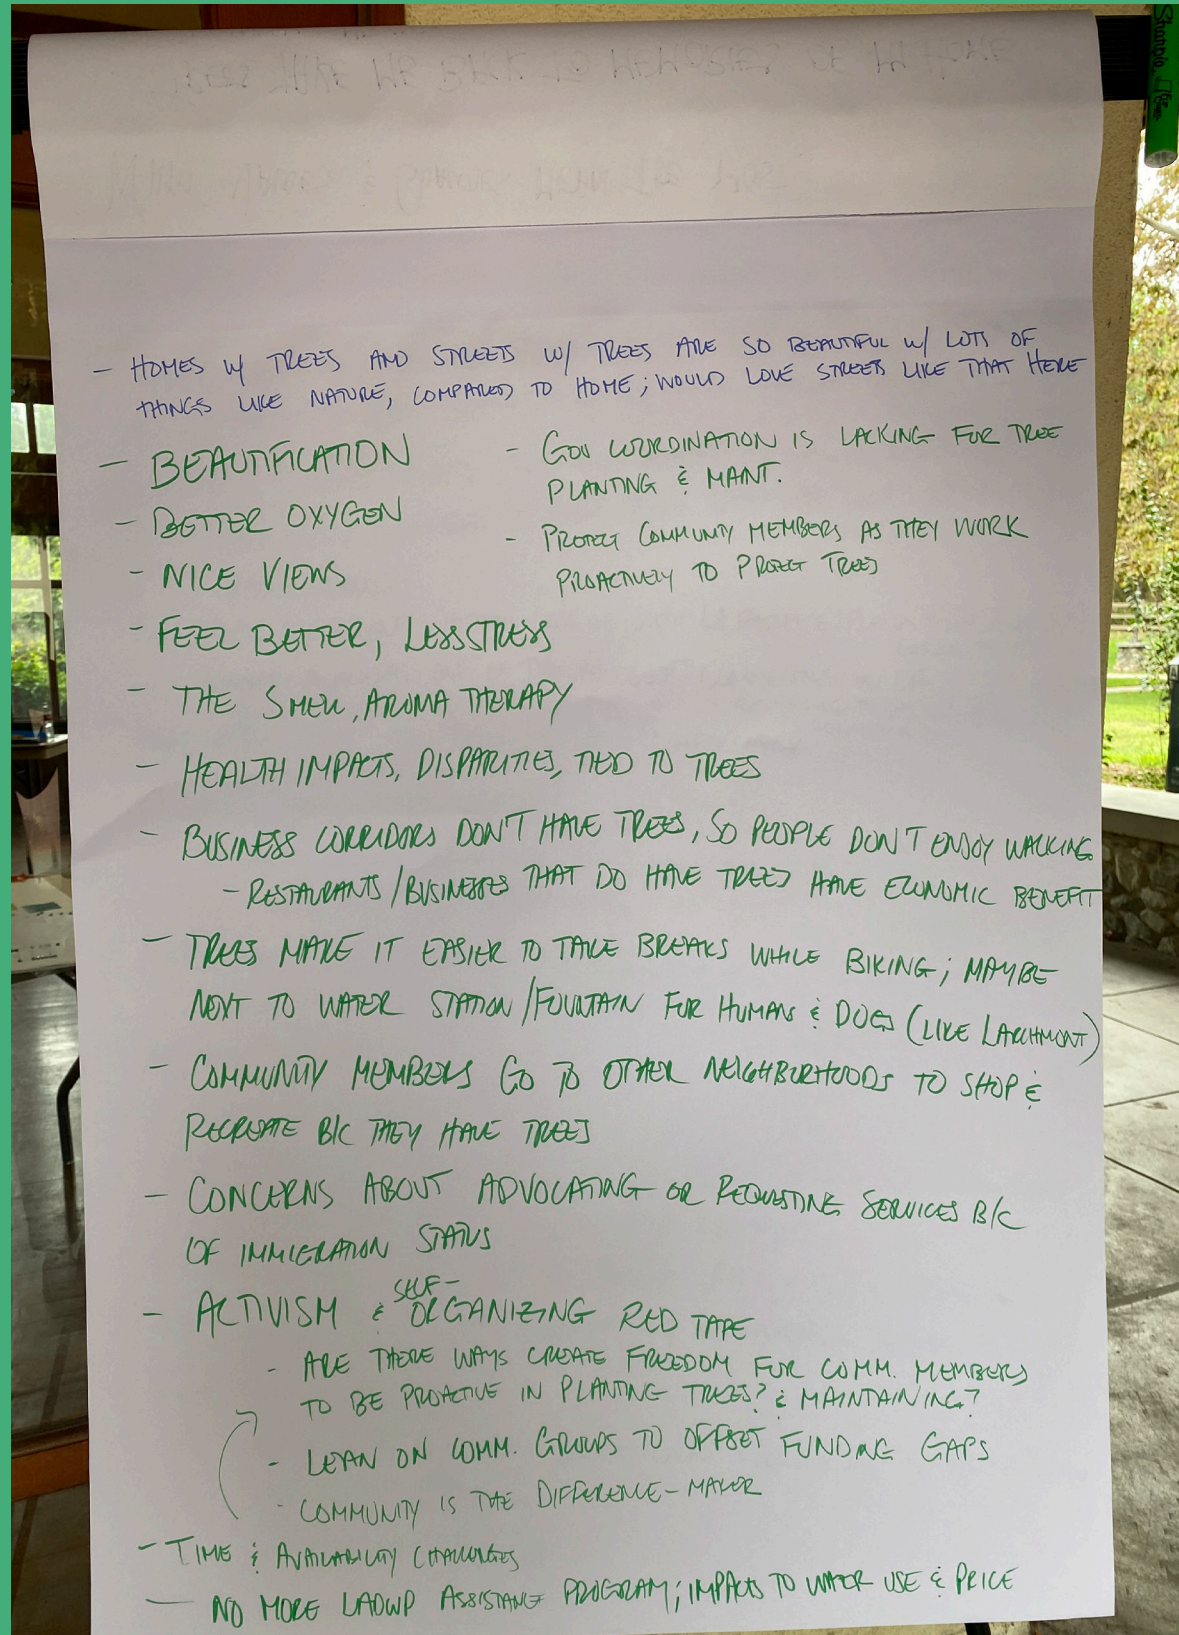 - HOMES W/ TREES AND STREETS W/ TREES ARE SO BEAUTIFUL W/ LOTS OF
THINGS LIKE NATURE, COMPARED TO HOME; WOULD LOVE STREETS LIKE THAT HERE
- BEAUTIFICATION
- BETTER OXYGEN
- NICE VIEWS
- GOV COORDINATION IS LACKING FOR TREE
PLANTING & MAINT.
- PROTECT COMMUNITY MEMBERS AS THEY WORK
PROACTIVELY TO PROTECT TREES
- FEEL BETTER, LESS STRESS
- THE SMELL, AROMA THERAPY
- HEALTH IMPACTS, DISPARITIES, TIED TO TREES
- BUSINESS CORRIDORS DON'T HAVE TREES, SO PEOPLE DON'T ENJOY WALKING
- RESTAURANTS/BUSINESSES THAT DO HAVE TREES HAVE ECONOMIC BENEFIT
- TREES MAKE IT EASIER TO TAKE BREAKS WHILE BIKING; MAYBE
NEXT TO WATER STATION/FOUNTAIN FOR HUMANS & DOGS (LIKE LARCHMONT)
- COMMUNITY MEMBERS GO TO OTHER NEIGHBORHOODS TO SHOP &
RECREATE B/C THEY HAVE TREES
- CONCERNS ABOUT ADVOCATING OR REQUESTING SERVICES B/C
OF IMMIGRATION STATUS
- ACTIVISM & SELF-ORGANIZING RED TAPE
- ARE THERE WAYS CREATE FREEDOM FOR COMM. MEMBERS
TO BE PROACTIVE IN PLANTING TREES? & MAINTAINING?
- LEAN ON COMM. GROUPS TO OFFSET FUNDING GAPS
- COMMUNITY IS THE DIFFERENCE-MAKER
- TIME & AVAILABILITY CHALLENGES
- NO MORE LADWP ASSISTANCE PROGRAM; IMPACTS TO WATER USE & PRICE
Sharpie